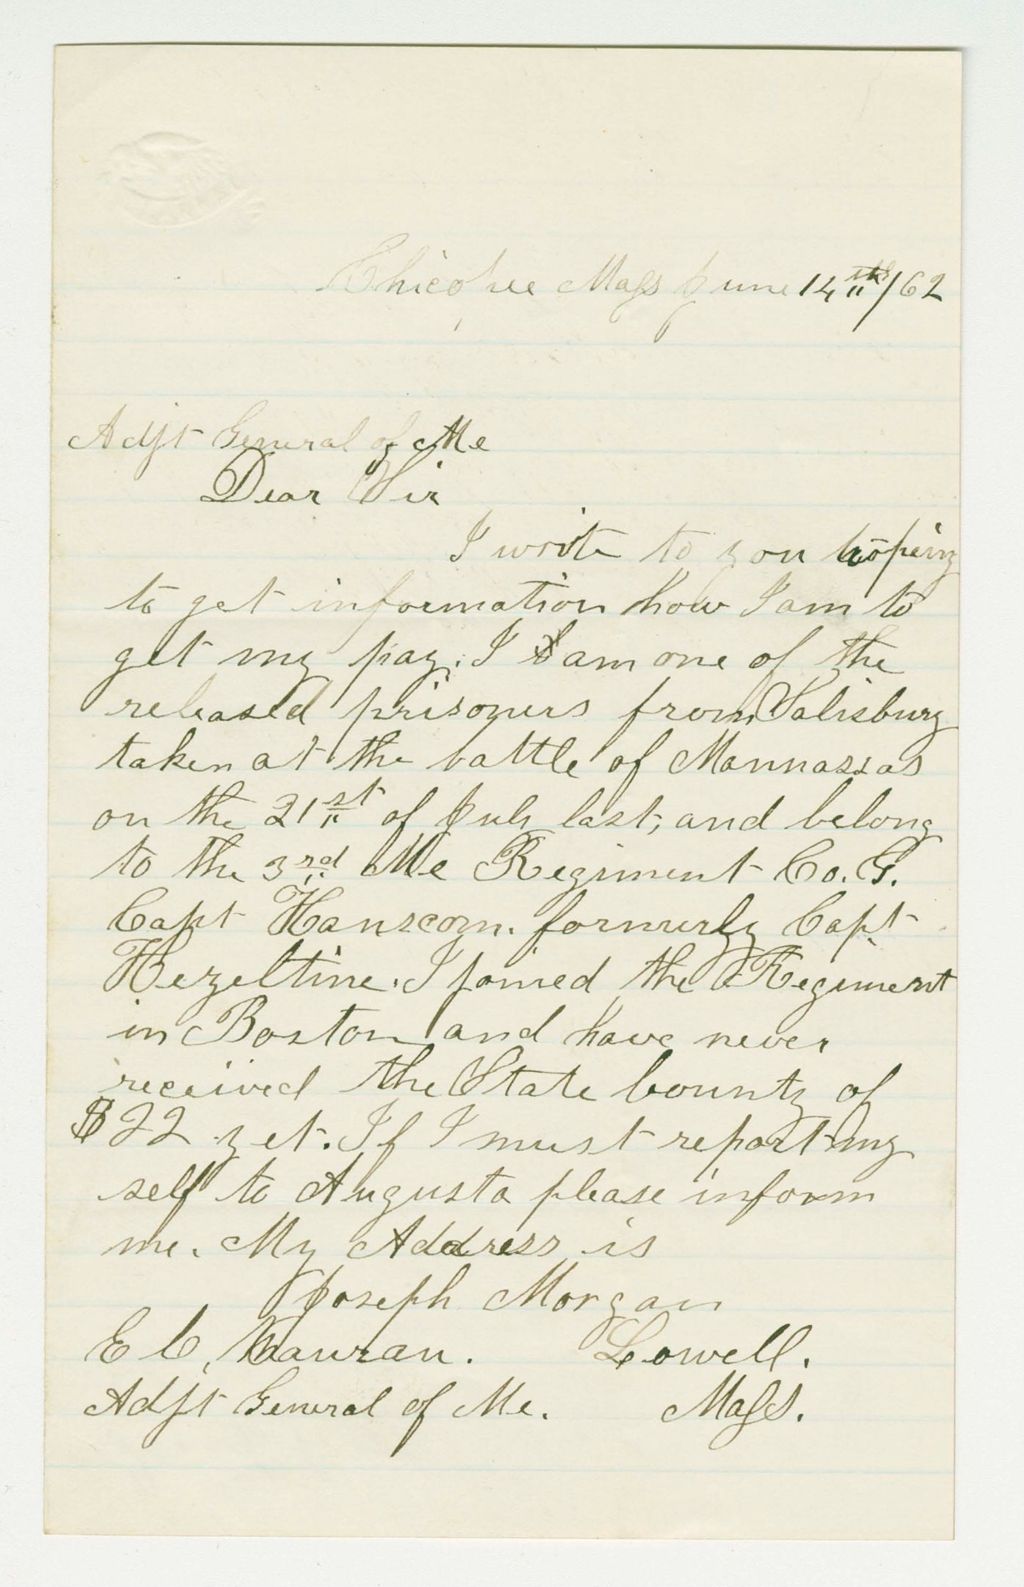 Chicopee Mass June 14th/62
Adjt General of Me
Dear Sir
I write to you hoping
to get information how I am to
get my pay. I am one of the
released prisoners from Salisbury
taken at the battle of Mannassas
on the 21st of July last, and belong
to the 3rd Me Regiment Co. G.
Capt Hanscom. formerly Capt
Hezeltine. I joined the Regiment
in Boston and have never
received the State bounty of
$22 yet. If I must report my
self to Augusta please inform
me. My Address is
Joseph Morgan
E C, Lowell.
Adjt General of Me. Mass.